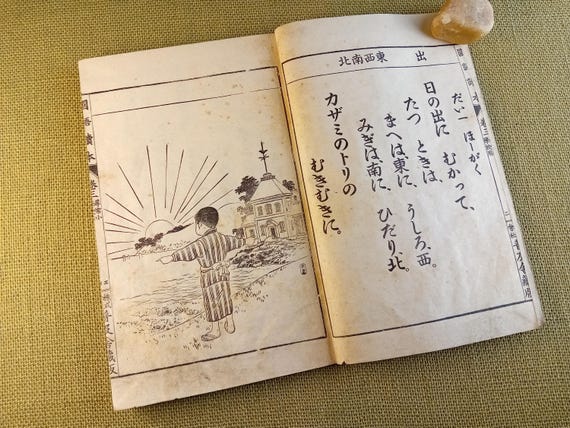 出 東西南北
だい一 ほーがく
日の出に むかって、
たつ ときは、
まへは東に、うしろ、西。
みぎは、南に、ひだり、北。
カザミのトリの
むきむきに。
國語讀本